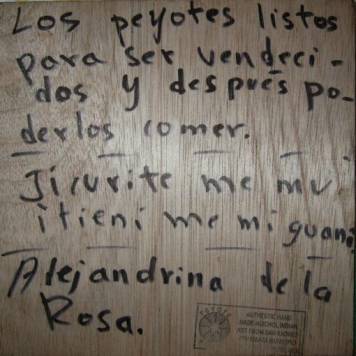 Los peyotes listos
para ser vendeci-
dos y despues po-
derlos comer.
Jicurite me mu
itieni me mi guani
Alejandrina de la
Rosa.
AUTHENTIC HAND
MADE HUICHOL INDIAN
ART FROM SAN ANDRES